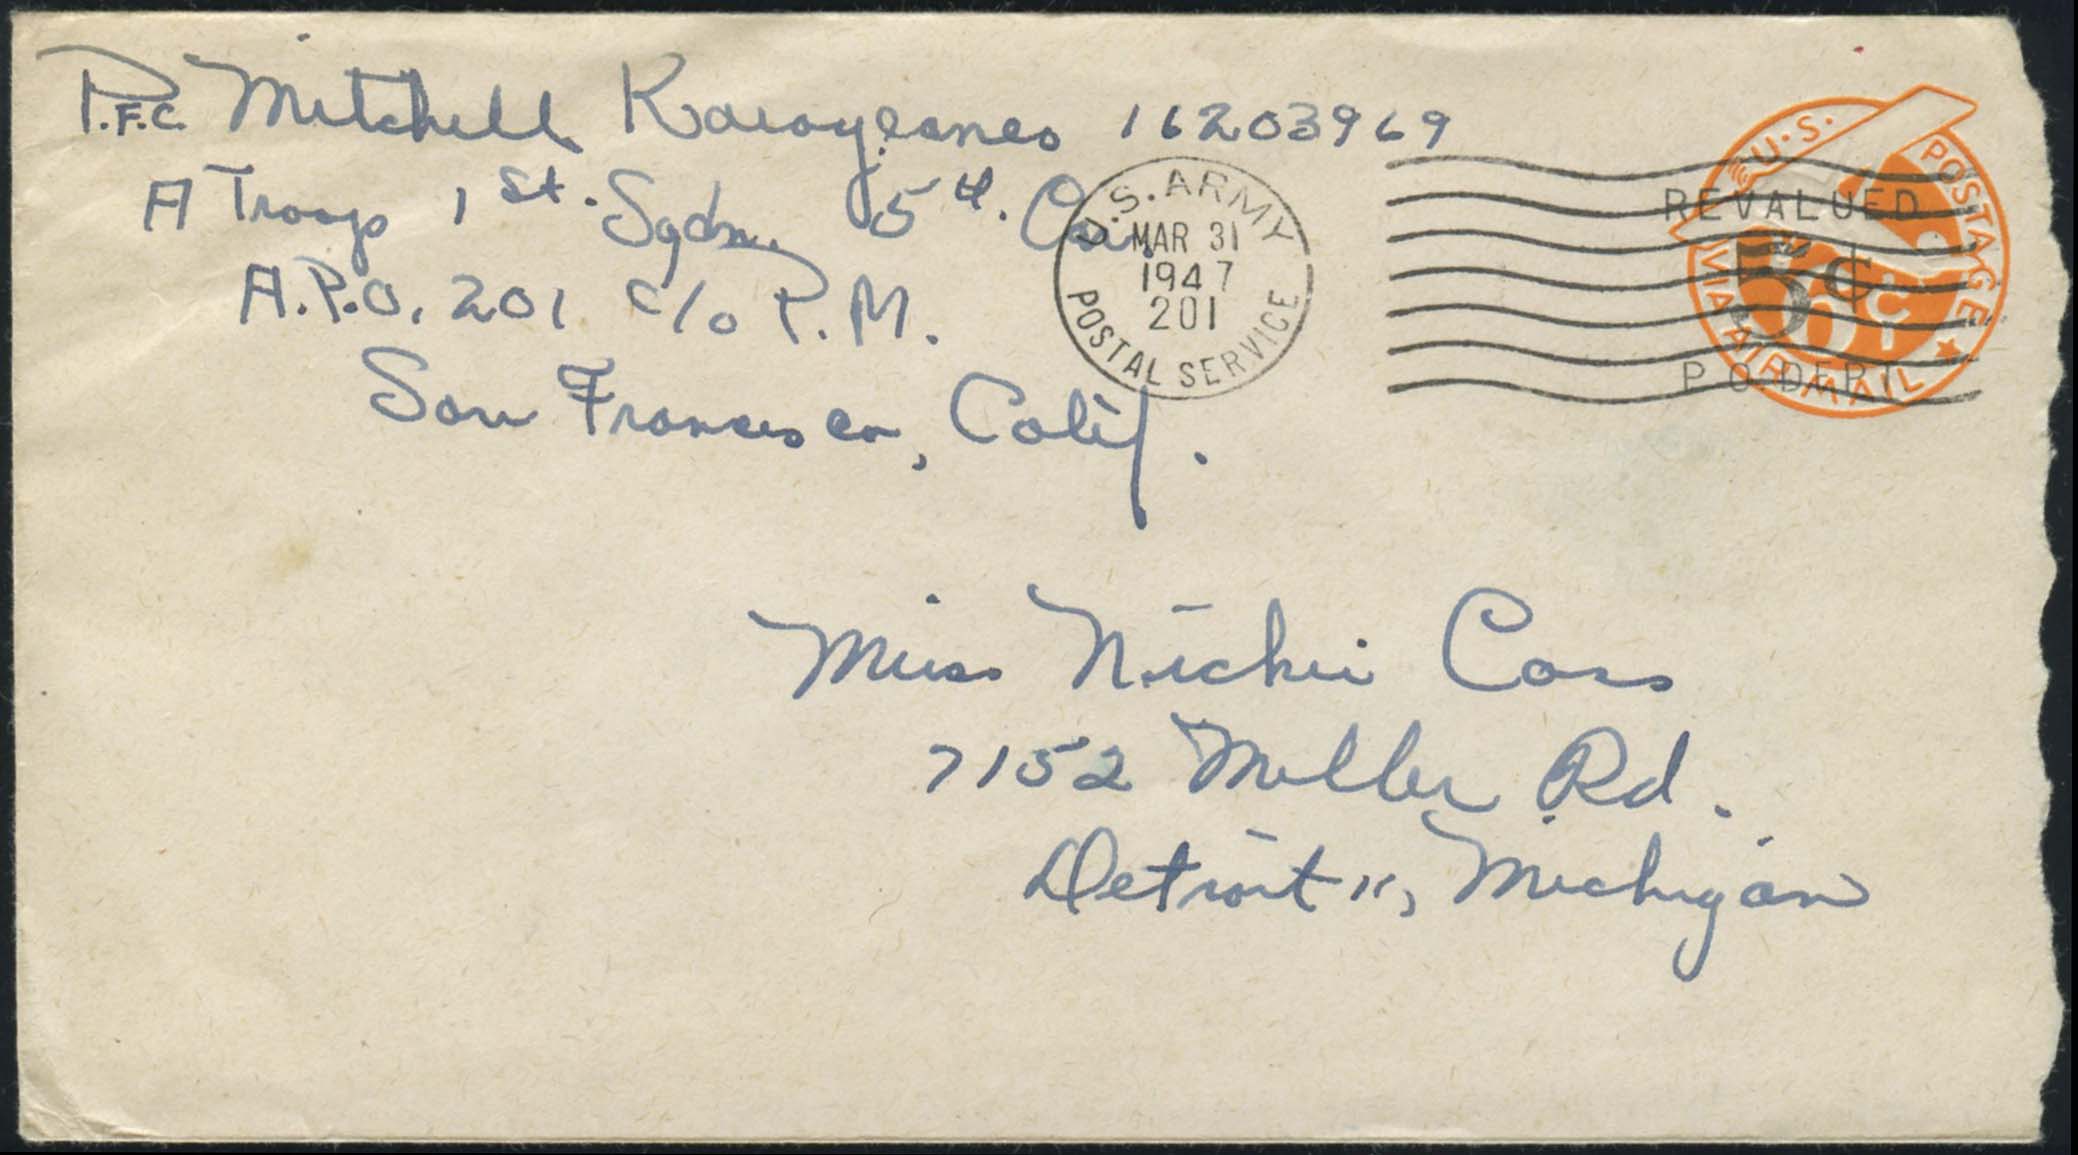 P.F.C. Mitchell Karageanes 16203969
A Troop 1st. Sqdrn 5th. Cav.
A.P.O. 201 c/o P.M.
San Francisco, Calif.
U.S. ARMY
MAR 31
1947
201
POSTAL SERVICE
U.S. POSTAGE
VIA AIRMAIL
6¢
REVALUED
5¢
P.O. DEPT.
Miss Nickie Coss
7152 Miller Rd.
Detroit 11, Michigan